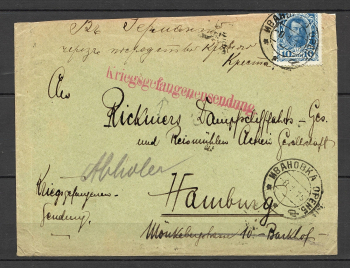 Въ Германію
черезъ посредство Краснаго
Креста
10 10
Kriegsgefangenensendung
An
Rickmers Dampfschiffahrts-Ges.
und Reismühlen Actien Gesellschaft
Abholer
Kriegsgefangenen-
Sendung.
Hamburg
ИВАНОВКА ОРЕНБ.
Mönkebergstrasse 10 - Barkhof